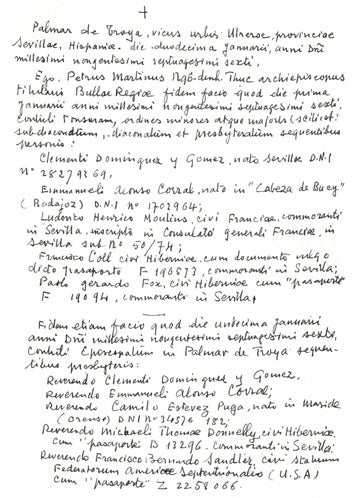 +
Palmar de Troya, vicus urbis Utrerae, provinciae
Sevillae, Hispaniae. die duodecima januarii, anni Dñi
millesimi nongentesimi septuagesimi sexti,
Ego, Petrus Martinus Ngô-dinh-Thuc archiepiscopus
titularis Bullae Regiae fidem facio quod die prima
januarii anni millesimi nongentesimi septuagesimi sexti.
Contuli tonsuram, ordines minores atque majores (scilicet:
subdiaconatum, diaconatum et presbyteratum sequentibus
personis:
Clementi Dominguez y Gomez, nato Sevillae D.N.I
Nº 28279369,
Emmanueli Alonso Corral, nato in "Cabeza de Buey"
(Badajoz) D.N.I nº 1702964;
Ludovico Henrico Moulins, civi Franciae, commoranti
in Sevilla, inscripto in Consulato generali Franciae, in
Sevilla sub nº 50/74;
Francisco Coll civi Hiberniae, cum documento vulgo
dicto passaporto F 196573, commoranti in Sevilla;
Paolo Gerardo Fox, civi Hiberniae cum "passaporte"
F 19094, commoranti in Sevilla,
Fidem etiam facio quod die undecima januarii
anni Dñi millesimi nongentesimi septuagesimi sexti,
contuli Episcopatum in Palmar de Troya sequen-
tibus presbyteris:
Reverendo Clementi Dominguez y Gomez,
Reverendo Emmanueli Alonso Corral;
Reverendo Camilo Estevez Puga, nato in Maside
(Orense) DNI nº 34576 182;
Reverendo Michaeli Thomae Donnelly, civi Hiberniae,
cum "passaporte" D 13296. commoranti in Sevilla;
Reverendo Francisco Bernardo Sandler, civi Statuum
Federatorum Americae Septentrionalis (U.S.A)
cum "passaporte" Z 2258066.